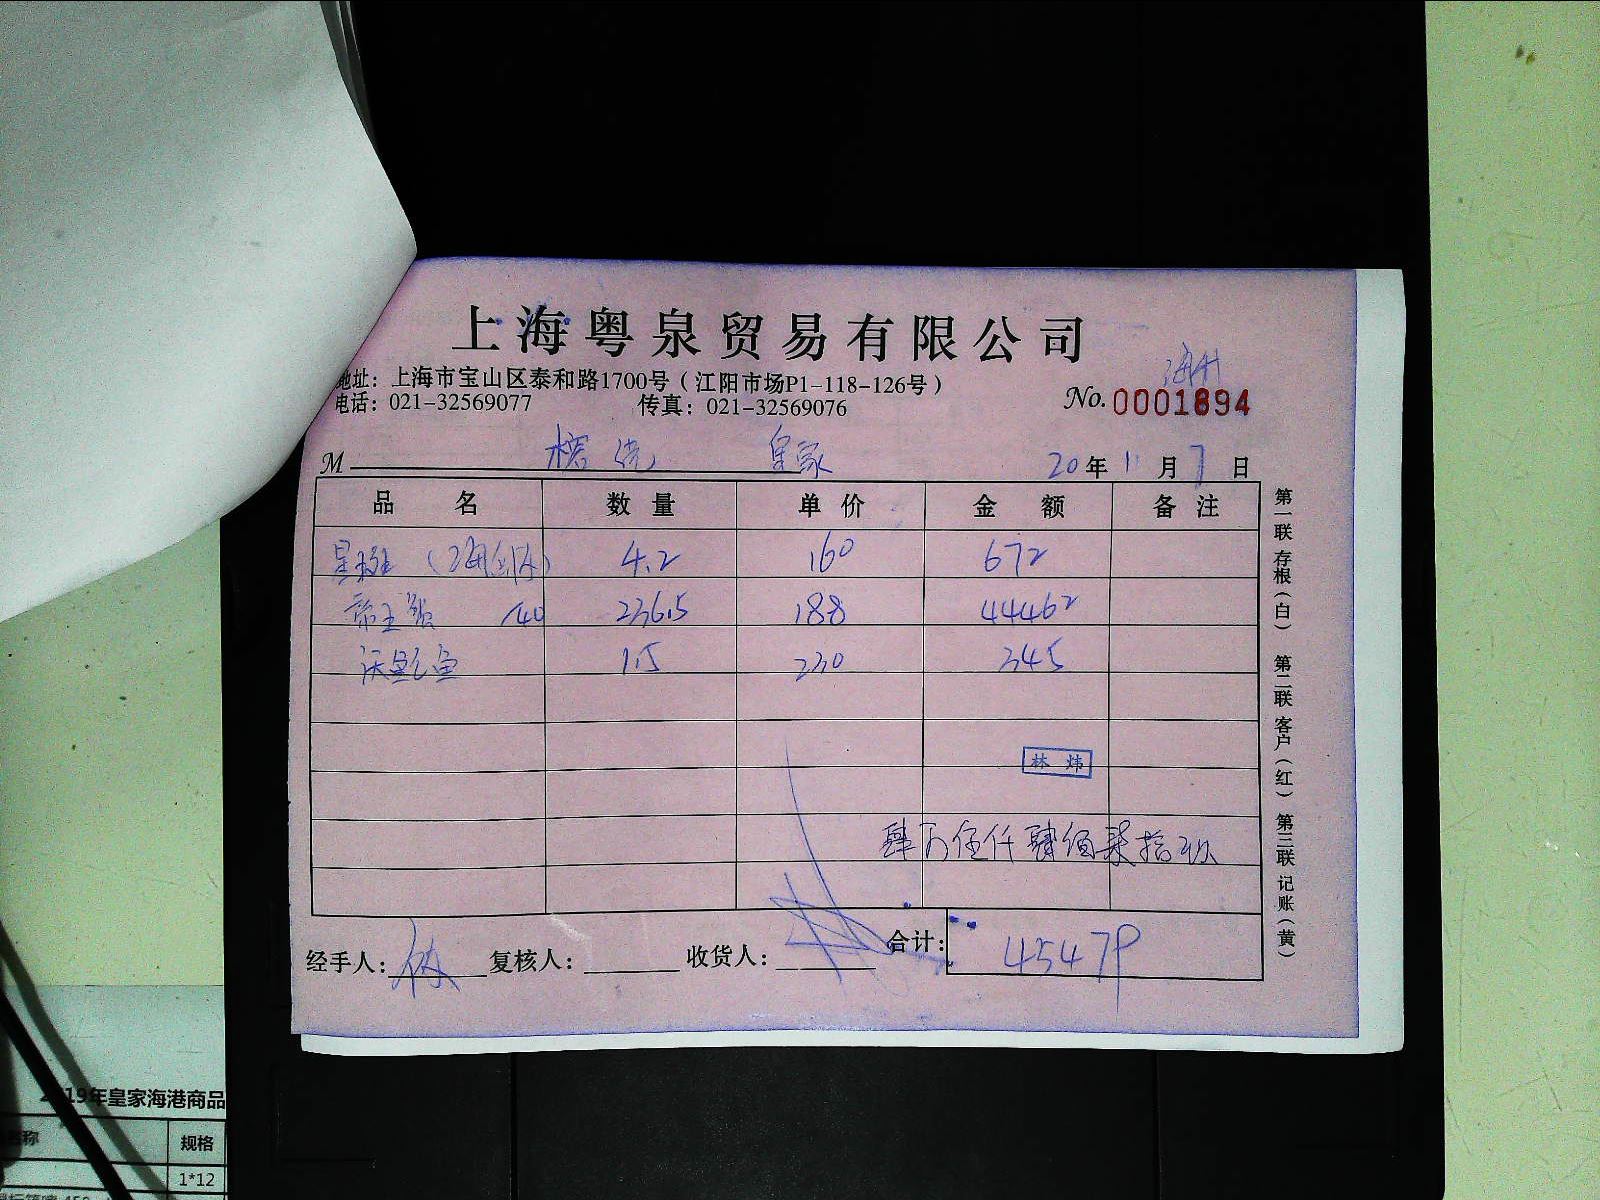 上海粤泉贸易有限公司
地址：上海市宝山区泰和路1700号（江阳市场P1-118-126号）
电话：021-32569077 传真：021-32569076
No. 0001894
M 皇家 20年11月7日
品名 数量 单价 金额 备注
星斑 4.2 160 672
帝王蟹 /40 236.5 188 44462
沃鲍鱼 1.5 230 345
林炜
肆万伍仟肆佰柒拾玖
经手人： 复核人： 收货人： 合计： 45479
第一联存根（白） 第二联客户（红） 第三联记账（黄）
2019年皇家海港商品
名称 规格
1*12